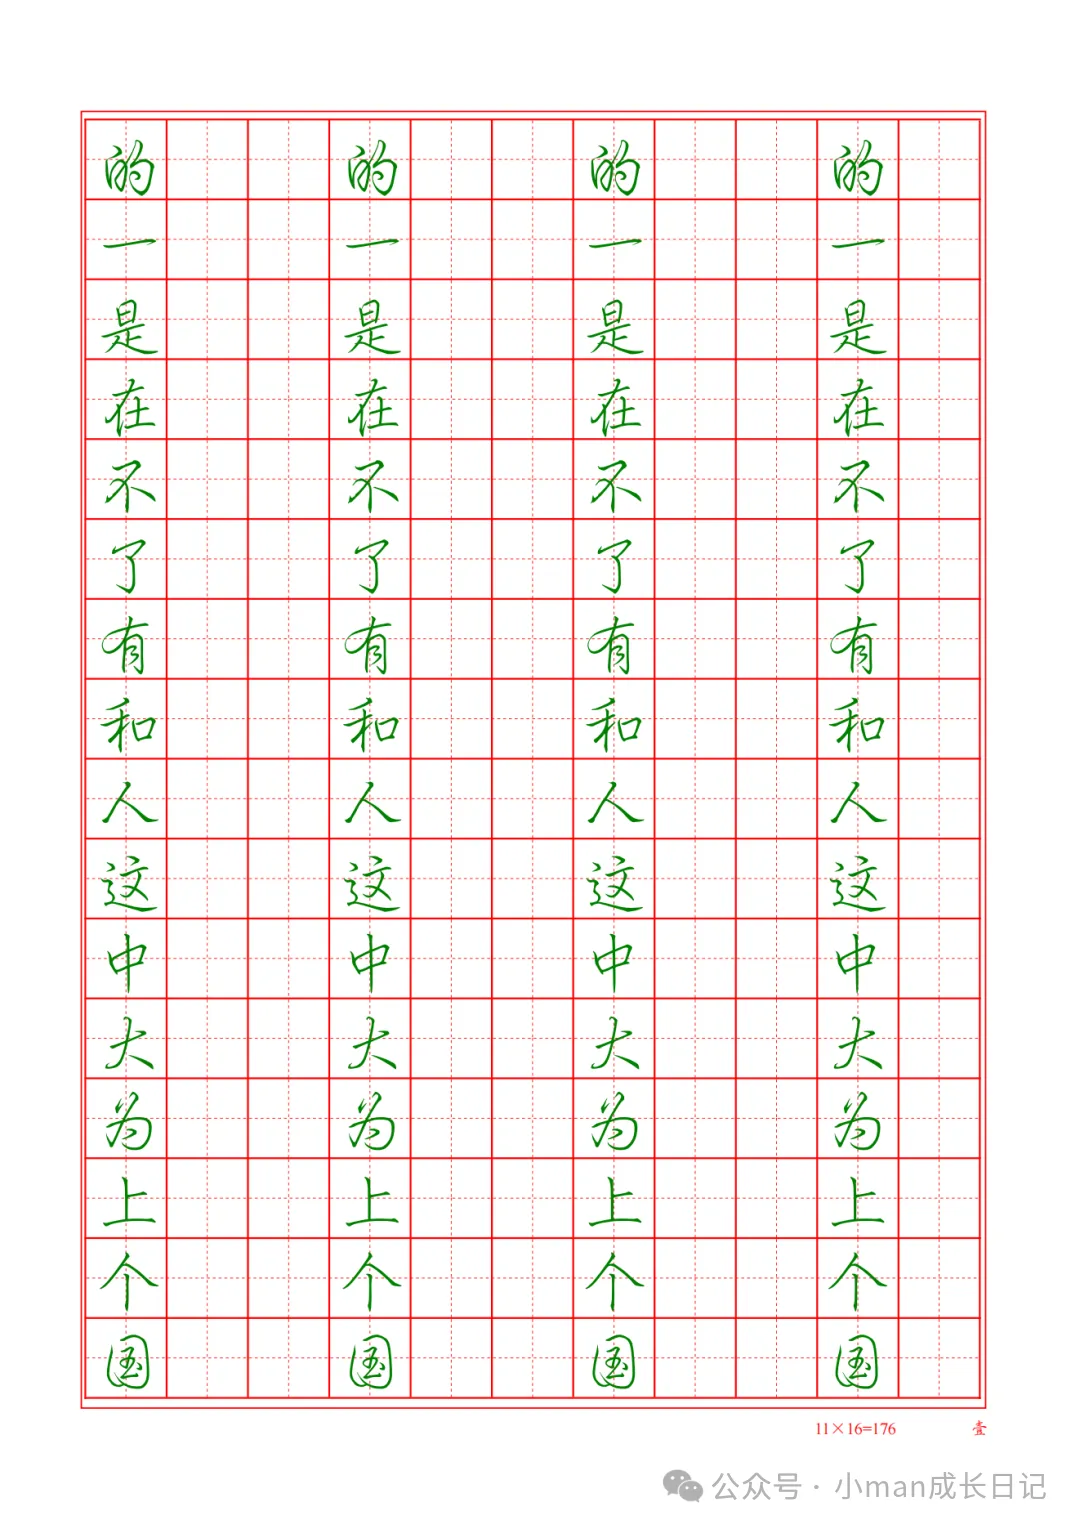 的 的 的 的
一 一 一 一
是 是 是 是
在 在 在 在
不 不 不 不
了 了 了 了
有 有 有 有
和 和 和 和
人 人 人 人
这 这 这 这
中 中 中 中
大 大 大 大
为 为 为 为
上 上 上 上
个 个 个 个
国 国 国 国
11×16=176 壹
公众号 · 小man成长日记